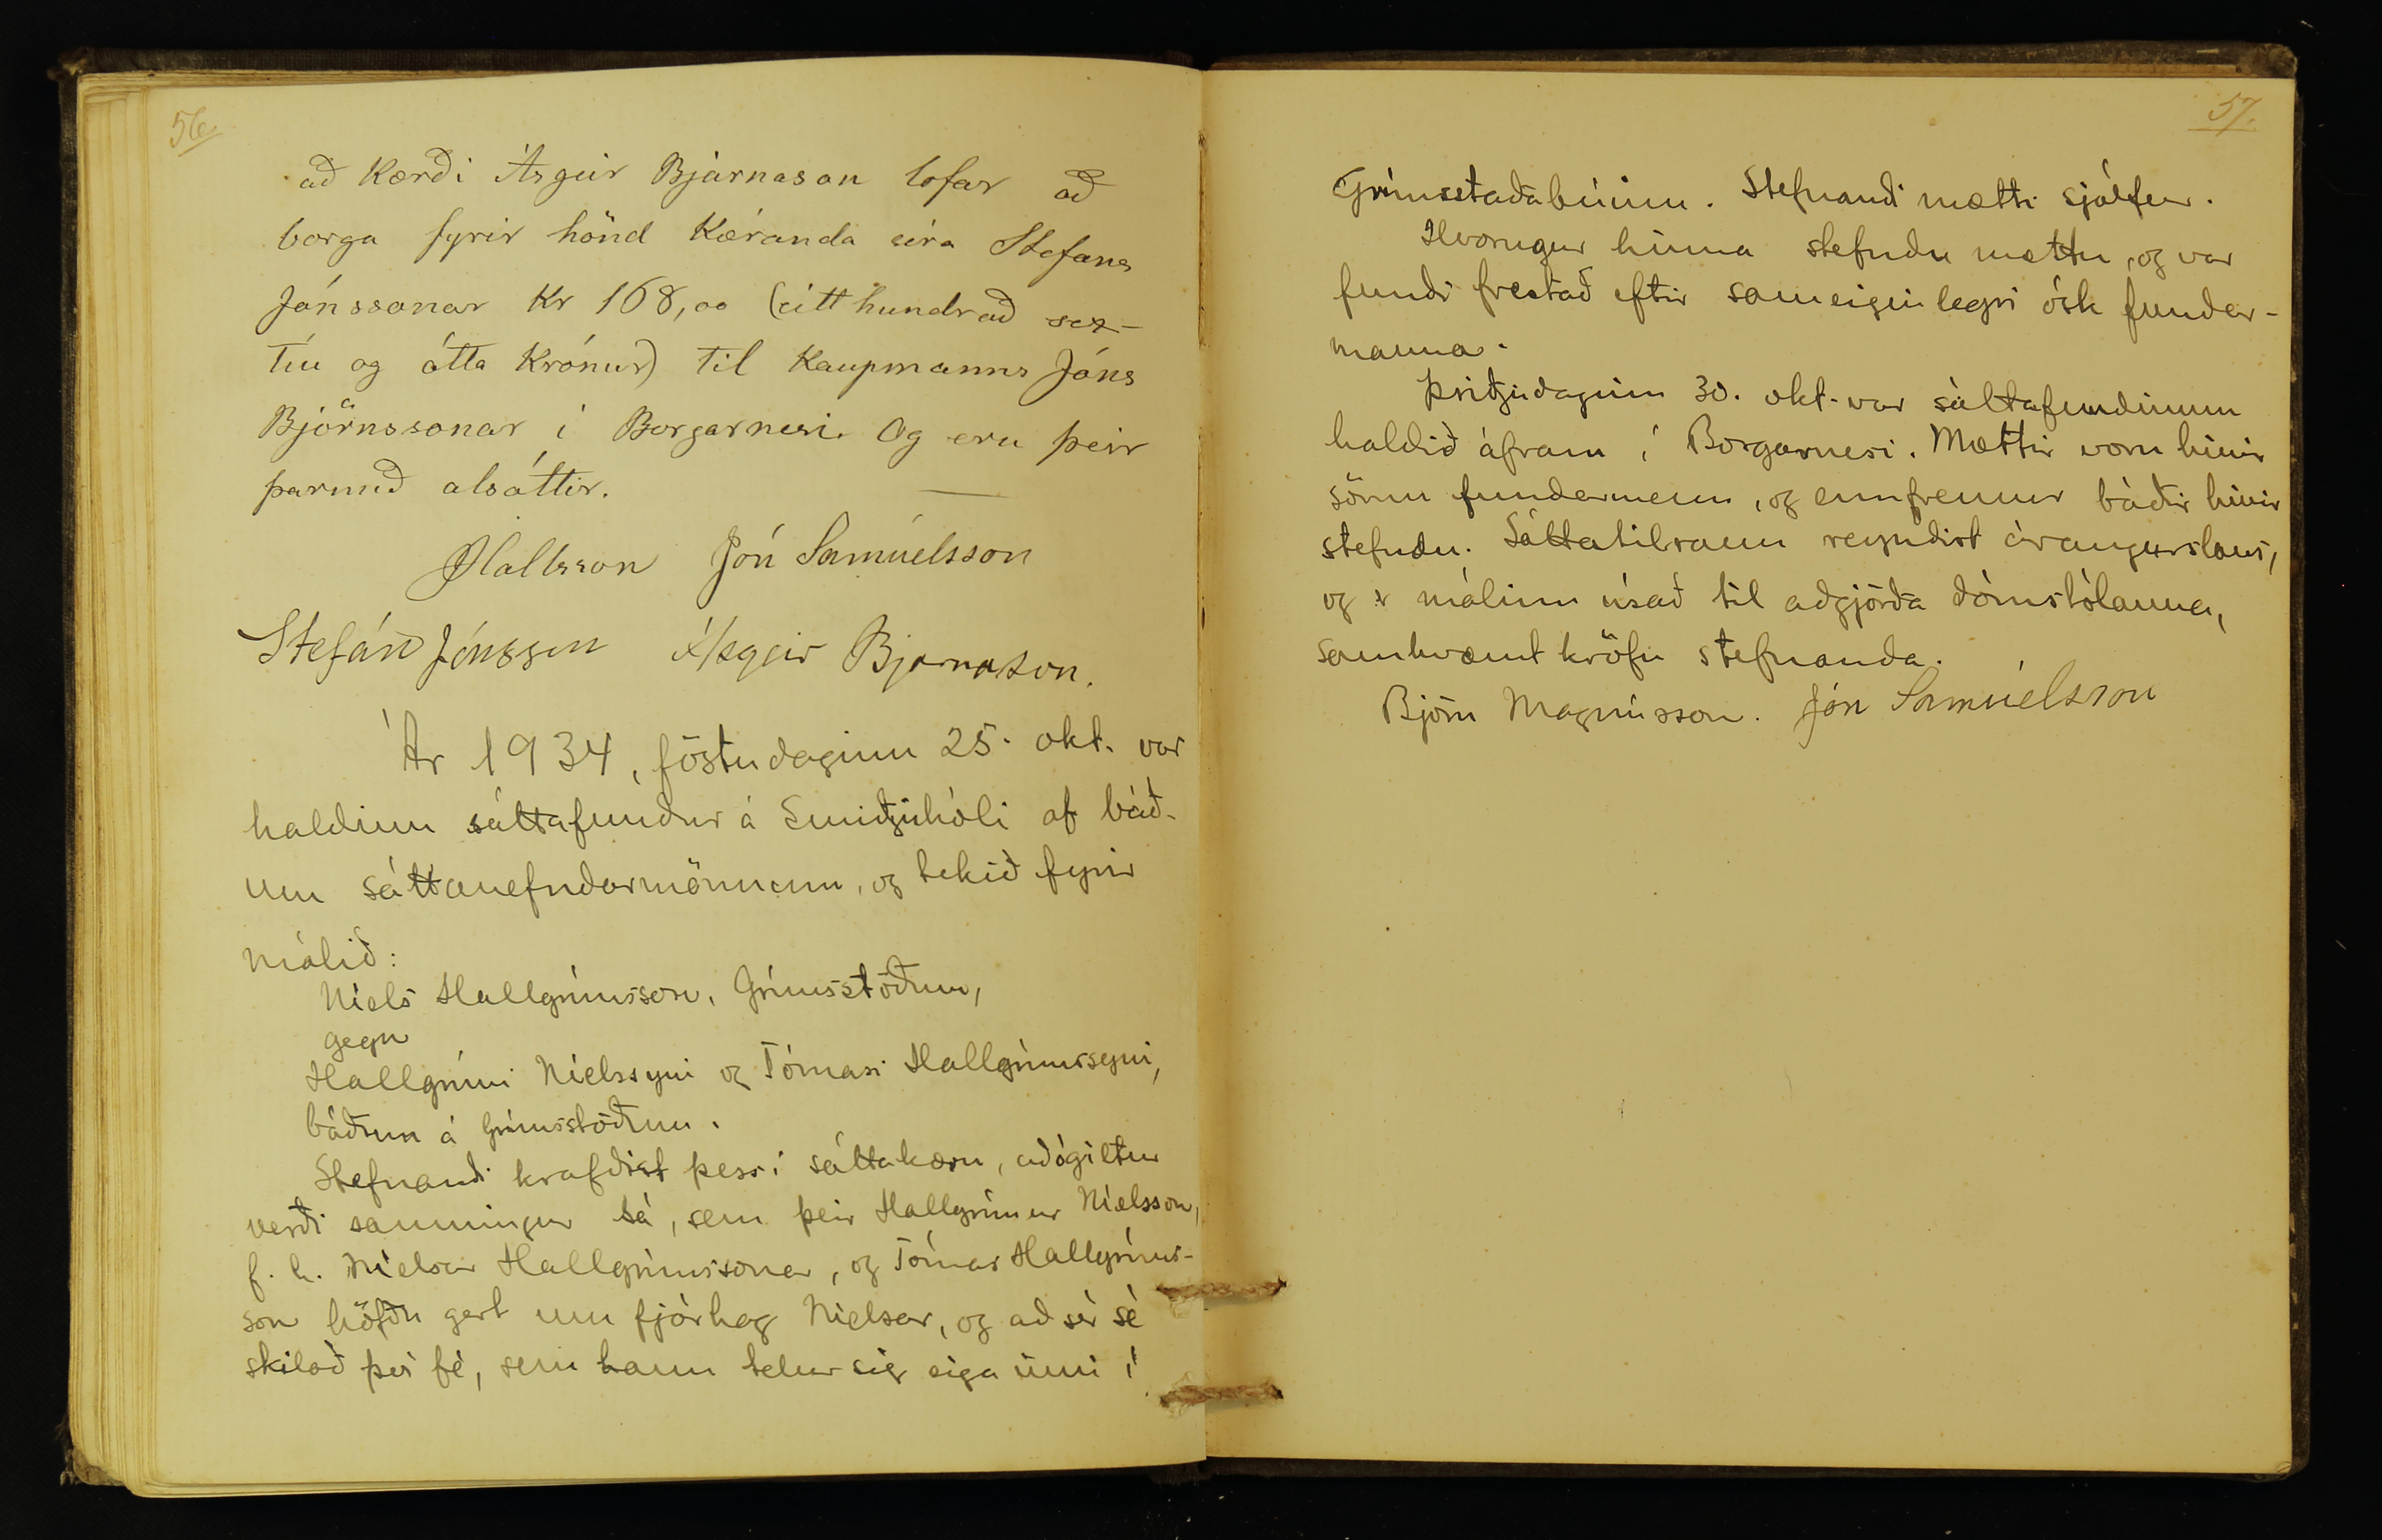 56.
að Kærði Ásgeir Bjarnason lofar að
borga fyrir hönd Kæranda síra Stefans
Jónssonar Kr 168,00 (eitt hundrað sex-
tíu og átta Krónur) til Kaupmanns Jóns
Björnssonar í Borgarnesi. Og eru þeir
þarmeð alsáttir.
JHallsson Jón Samúelsson
Stefán Jónsson Ásgeir Bjarnason.
Ár 1934, föstudaginn 25. okt. var
haldinn sáttafundur á Smiðjuhóli af báð-
um sáttanefndarmönnum, og tekið fyrir
málið:
Níels Hallgrímsson, Grímsstöðum,
gegn
Hallgrími Níelssyni og Tómasi Hallgrímssyni,
báðum á Grímsstöðum.
Stefnandi krafðist þess í sáttakæru, að ógiltur
verði samningur sá, sem þeir Hallgrímur Níelsson,
f. h. Níelsar Hallgrímssonar, og Tómas Hallgríms-
son höfðu gert um fjárhag Níelsar, og að sér sé
skilað því fé, sem hann telur sig eiga inni í
57.
Grímsstaðabúinu. Stefnandi mætti sjálfur.
Hvorugur hinna stefndu mættu, og var
fundi frestað eftir sameiginlegri ósk fundar-
manna.
Þriðjudaginn 30. okt. var sáttafundinum
haldið áfram í Borgarnesi. Mættir voru hinir
sömu fundarmenn, og ennfremur báðir hinir
stefndu. Sáttatilraun reyndist árangurslaus,
og er málinu vísað til aðgjörða dómstólanna,
samkvæmt kröfu stefnanda.
Björn Magnússon. Jón Samúelsson